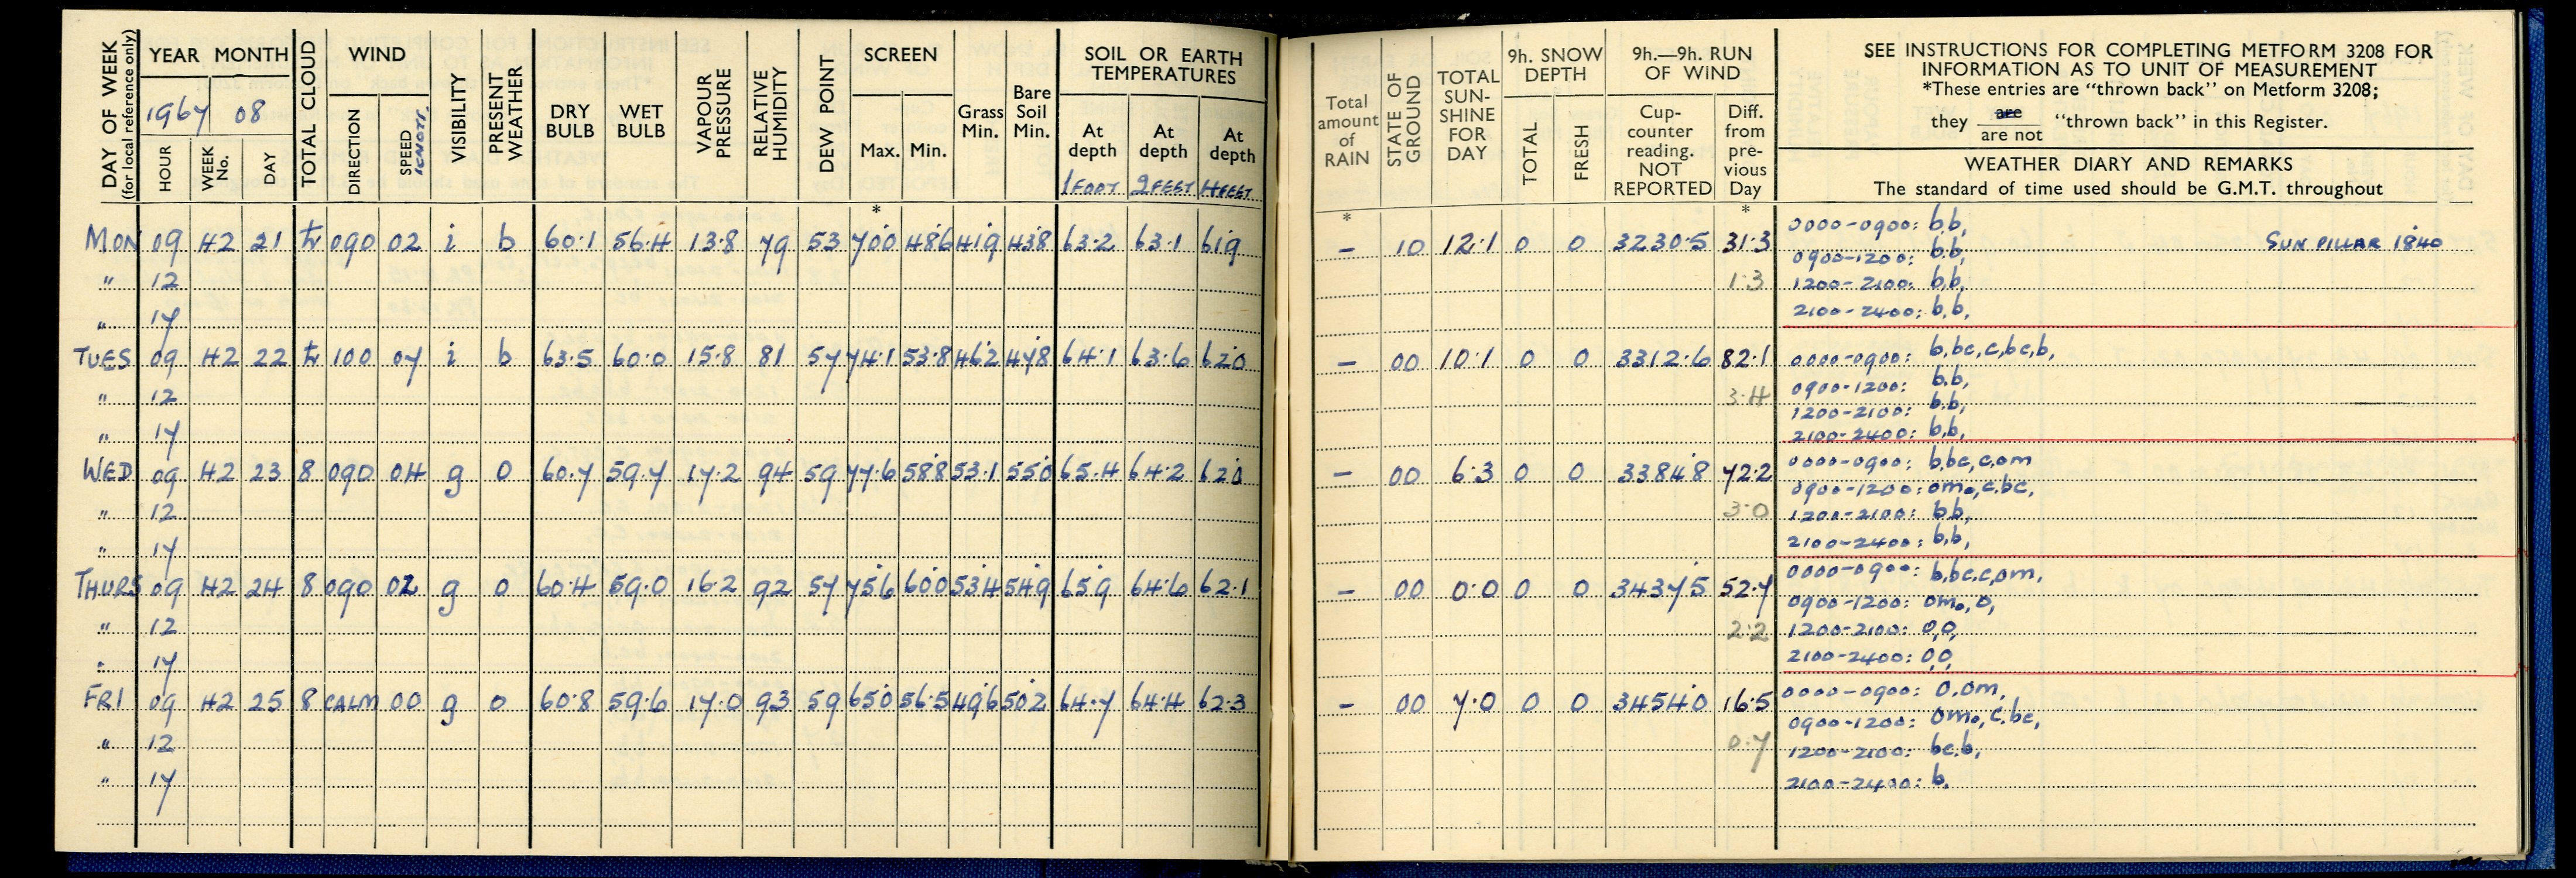 DAY OF WEEK
(for local reference only)
YEAR MONTH
1967 08
HOUR
WEEK No.
DAY
TOTAL CLOUD
WIND
DIRECTION
SPEED KNOTS.
VISIBILITY
PRESENT WEATHER
DRY BULB
WET BULB
VAPOUR PRESSURE
RELATIVE HUMIDITY
DEW POINT
SCREEN
Max. Min.
Grass Min.
Bare Soil Min.
SOIL OR EARTH TEMPERATURES
At depth 1 FOOT
At depth 2 FEET
At depth 4 FEET
Total amount of RAIN
STATE OF GROUND
TOTAL SUN-SHINE FOR DAY
9h. SNOW DEPTH
TOTAL
FRESH
9h.—9h. RUN OF WIND
Cup-counter reading. NOT REPORTED
Diff. from pre-vious Day
SEE INSTRUCTIONS FOR COMPLETING METFORM 3208 FOR
INFORMATION AS TO UNIT OF MEASUREMENT
*These entries are "thrown back" on Metform 3208;
they are / are not "thrown back" in this Register.
WEATHER DIARY AND REMARKS
The standard of time used should be G.M.T. throughout
* * *
MON 09 42 21 tr 090 02 i b 60.1 56.4 13.8 79 53 70.0 48.6 41.9 43.8 63.2 63.1 61.9 – 10 12.1 0 0 3230.5 31.3 0000-0900: b,b,
0900-1200: b.b, SUN PILLAR 1840
" 12 1.3 1200-2100: b,b,
" 17 2100-2400: b,b,
TUES 09 42 22 tr 100 07 i b 63.5 60.0 15.8 81 57 74.1 53.8 46.2 47.8 64.1 63.6 62.0 – 00 10.1 0 0 3312.6 82.1 0000-0900: b,bc,c,bc,b,
" 12 3.4 0900-1200: b.b,
1200-2100: b.b,
" 17 2100-2400: b,b,
WED 09 42 23 8 090 04 g 0 60.7 59.7 17.2 94 59 77.6 58.8 53.1 55.0 65.4 64.2 62.0 – 00 6.3 0 0 3384.8 72.2 0000-0900: b,bc,c,om
0900-1200: omo,c.bc,
" 12 3.0 1200-2100: b.b,
" 17 2100-2400: b,b,
THURS 09 42 24 8 090 02 g 0 60.4 59.0 16.2 92 57 75.6 60.0 53.4 54.9 65.9 64.6 62.1 – 00 0.0 0 0 3437.5 52.7 0000-0900: b,bc,c,om,
0900-1200: omo,o,
" 12 2.2 1200-2100: o,o,
" 17 2100-2400: o,o,
FRI 09 42 25 8 CALM 00 g 0 60.8 59.6 17.0 93 59 65.0 56.5 49.6 50.2 64.7 64.4 62.3 – 00 7.0 0 0 3454.0 16.5 0000-0900: o,om,
0900-1200: omo,c.bc,
" 12 0.7 1200-2100: bc.b,
" 17 2100-2400: b,